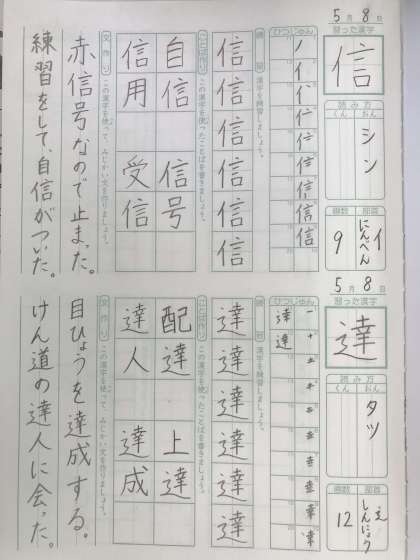 5月8日
習った漢字
信
読み方
くん
おん
シン
画数
9
部首
イ
にんべん
ひつじゅん
練習
漢字を練習しましょう。
信
信
信
信
信
信
ことば作り
この漢字を使ったことばを書きましょう。
自信
信号
信用
受信
文作り
この漢字を使って、みじかい文を作りましょう。
赤信号なので止まった。
練習をして、自信がついた。
5月8日
習った漢字
達
読み方
くん
おん
タツ
画数
12
部首
しんにょう
ひつじゅん
練習
漢字を練習しましょう。
達
達
達
達
達
達
ことば作り
この漢字を使ったことばを書きましょう。
配達
上達
達人
達成
文作り
この漢字を使って、みじかい文を作りましょう。
目ひょうを達成する。
けん道の達人に会った。